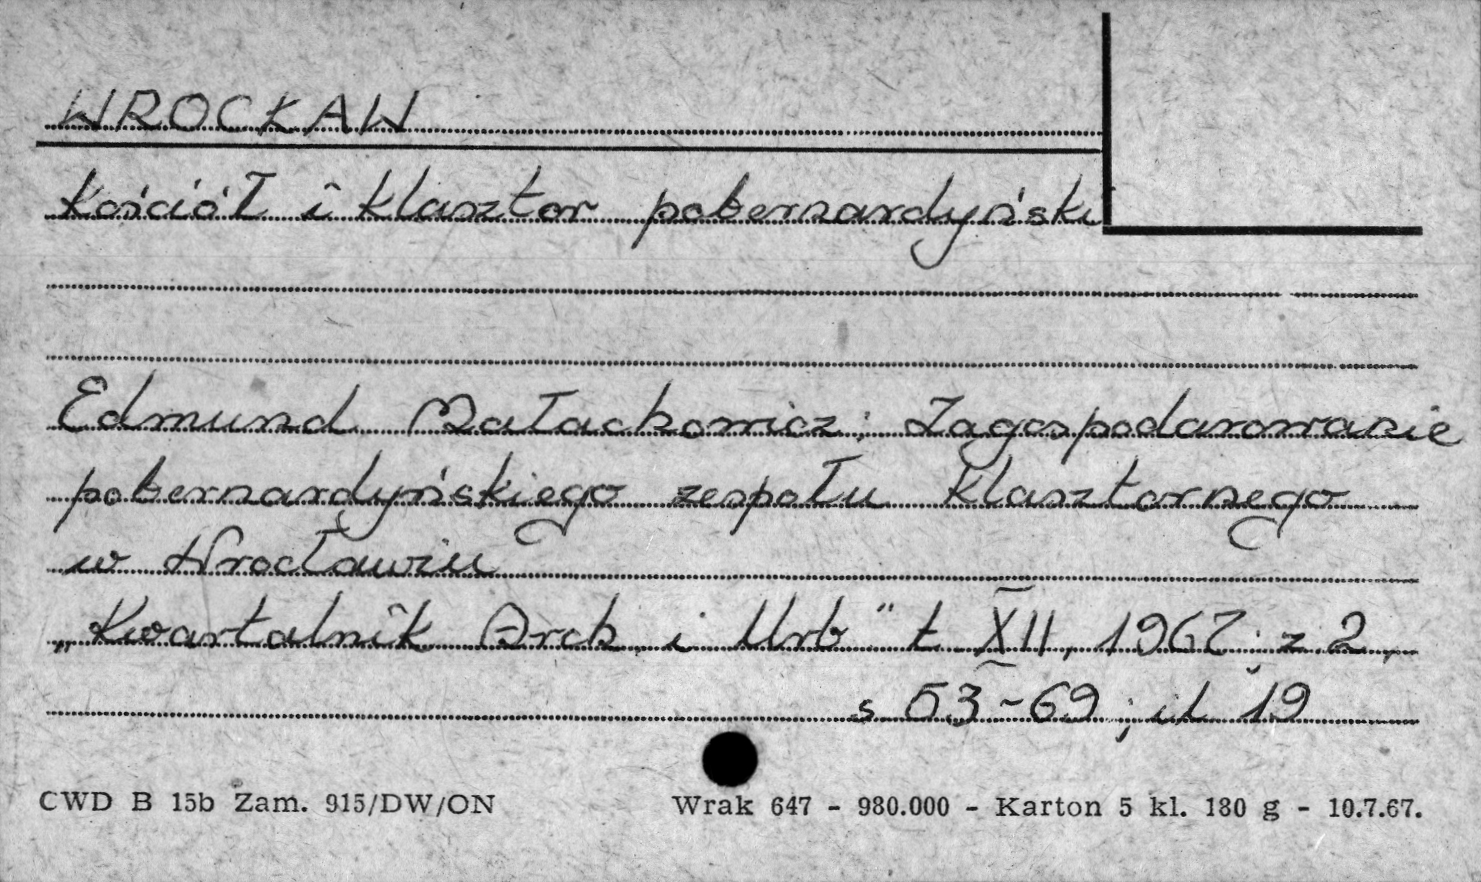 WROCŁAW
Kościół i klasztor pobernardyński
Edmund Małachowicz; Zagospodarowanie
pobernardyńskiego zespołu klasztornego
w Wrocławiu
„Kwartalnik Arch i Urb" t XII, 1967; z 2,
s 53-69; il 19
CWD B 15b Zam. 915/DW/ON Wrak 647 - 980.000 - Karton 5 kl. 180 g - 10.7.67.